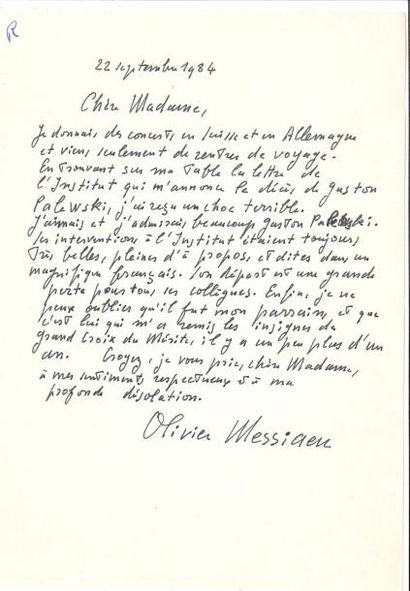 R
22 septembre 1984
Chère Madame,
Je donnais des concerts en Suisse et en Allemagne
et viens seulement de rentrer de voyage.
En trouvant sur ma table la lettre de
l'Institut qui m'annonce le décès de Gaston
Palewski, j'ai reçu un choc terrible.
J'aimais et j'admirais beaucoup Gaston Palewski.
Ses interventions à l'Institut étaient toujours
très belles, pleines d'à propos, et dites dans un
magnifique français. Son départ est une grande
perte pour tous ses collègues. Enfin, je ne
peux oublier qu'il fut mon parrain, et que
c'est lui qui m'a remis les insignes de
grand Croix du Mérite, il y a un peu plus d'un
an. Croyez, je vous prie, chère Madame,
à mes sentiments respectueux et à ma
profonde désolation.
Olivier Messiaen